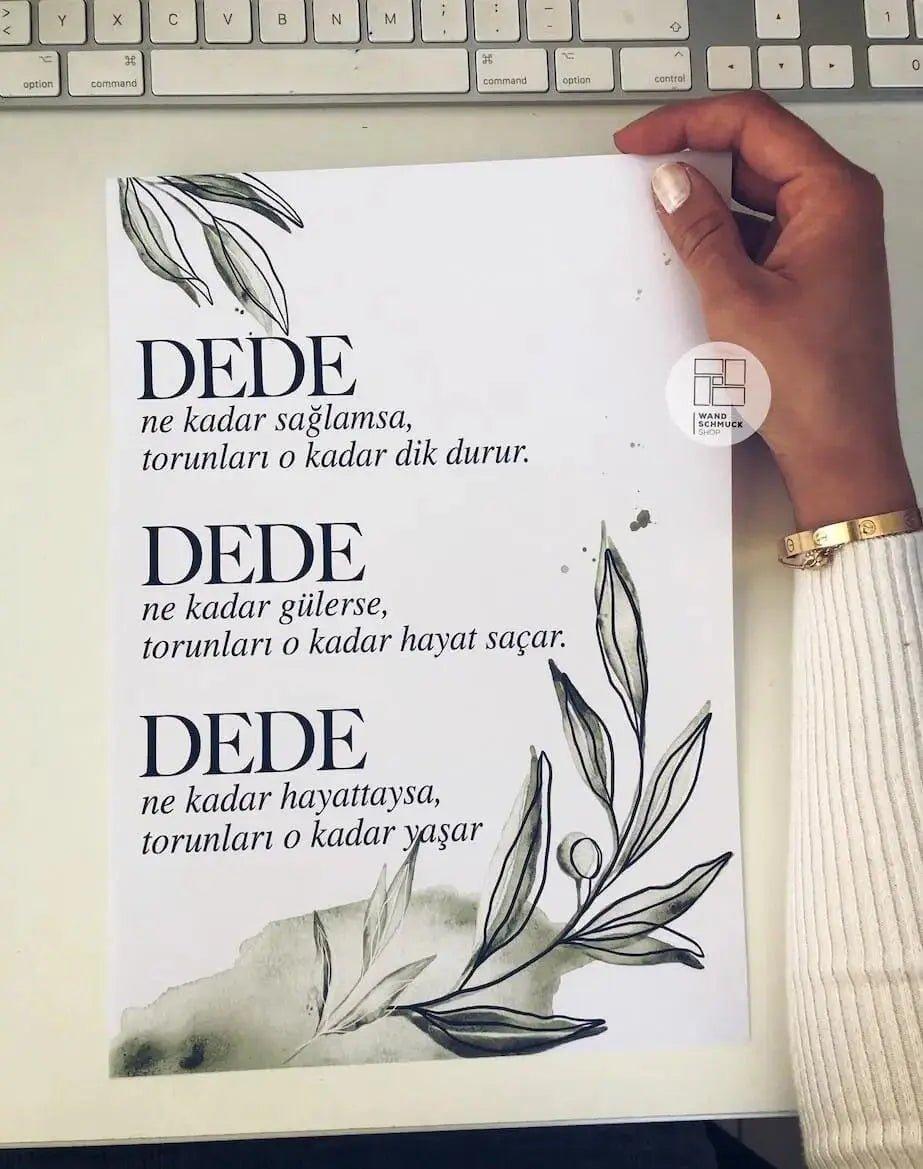 < Y X C V B N M ; : _
> , . -
option ⌘ command ⌘ command option control 1 0
DEDE
ne kadar sağlamsa,
torunları o kadar dik durur.
WAND
SCHMUCK
SHOP
DEDE
ne kadar gülerse,
torunları o kadar hayat saçar.
DEDE
ne kadar hayattaysa,
torunları o kadar yaşar